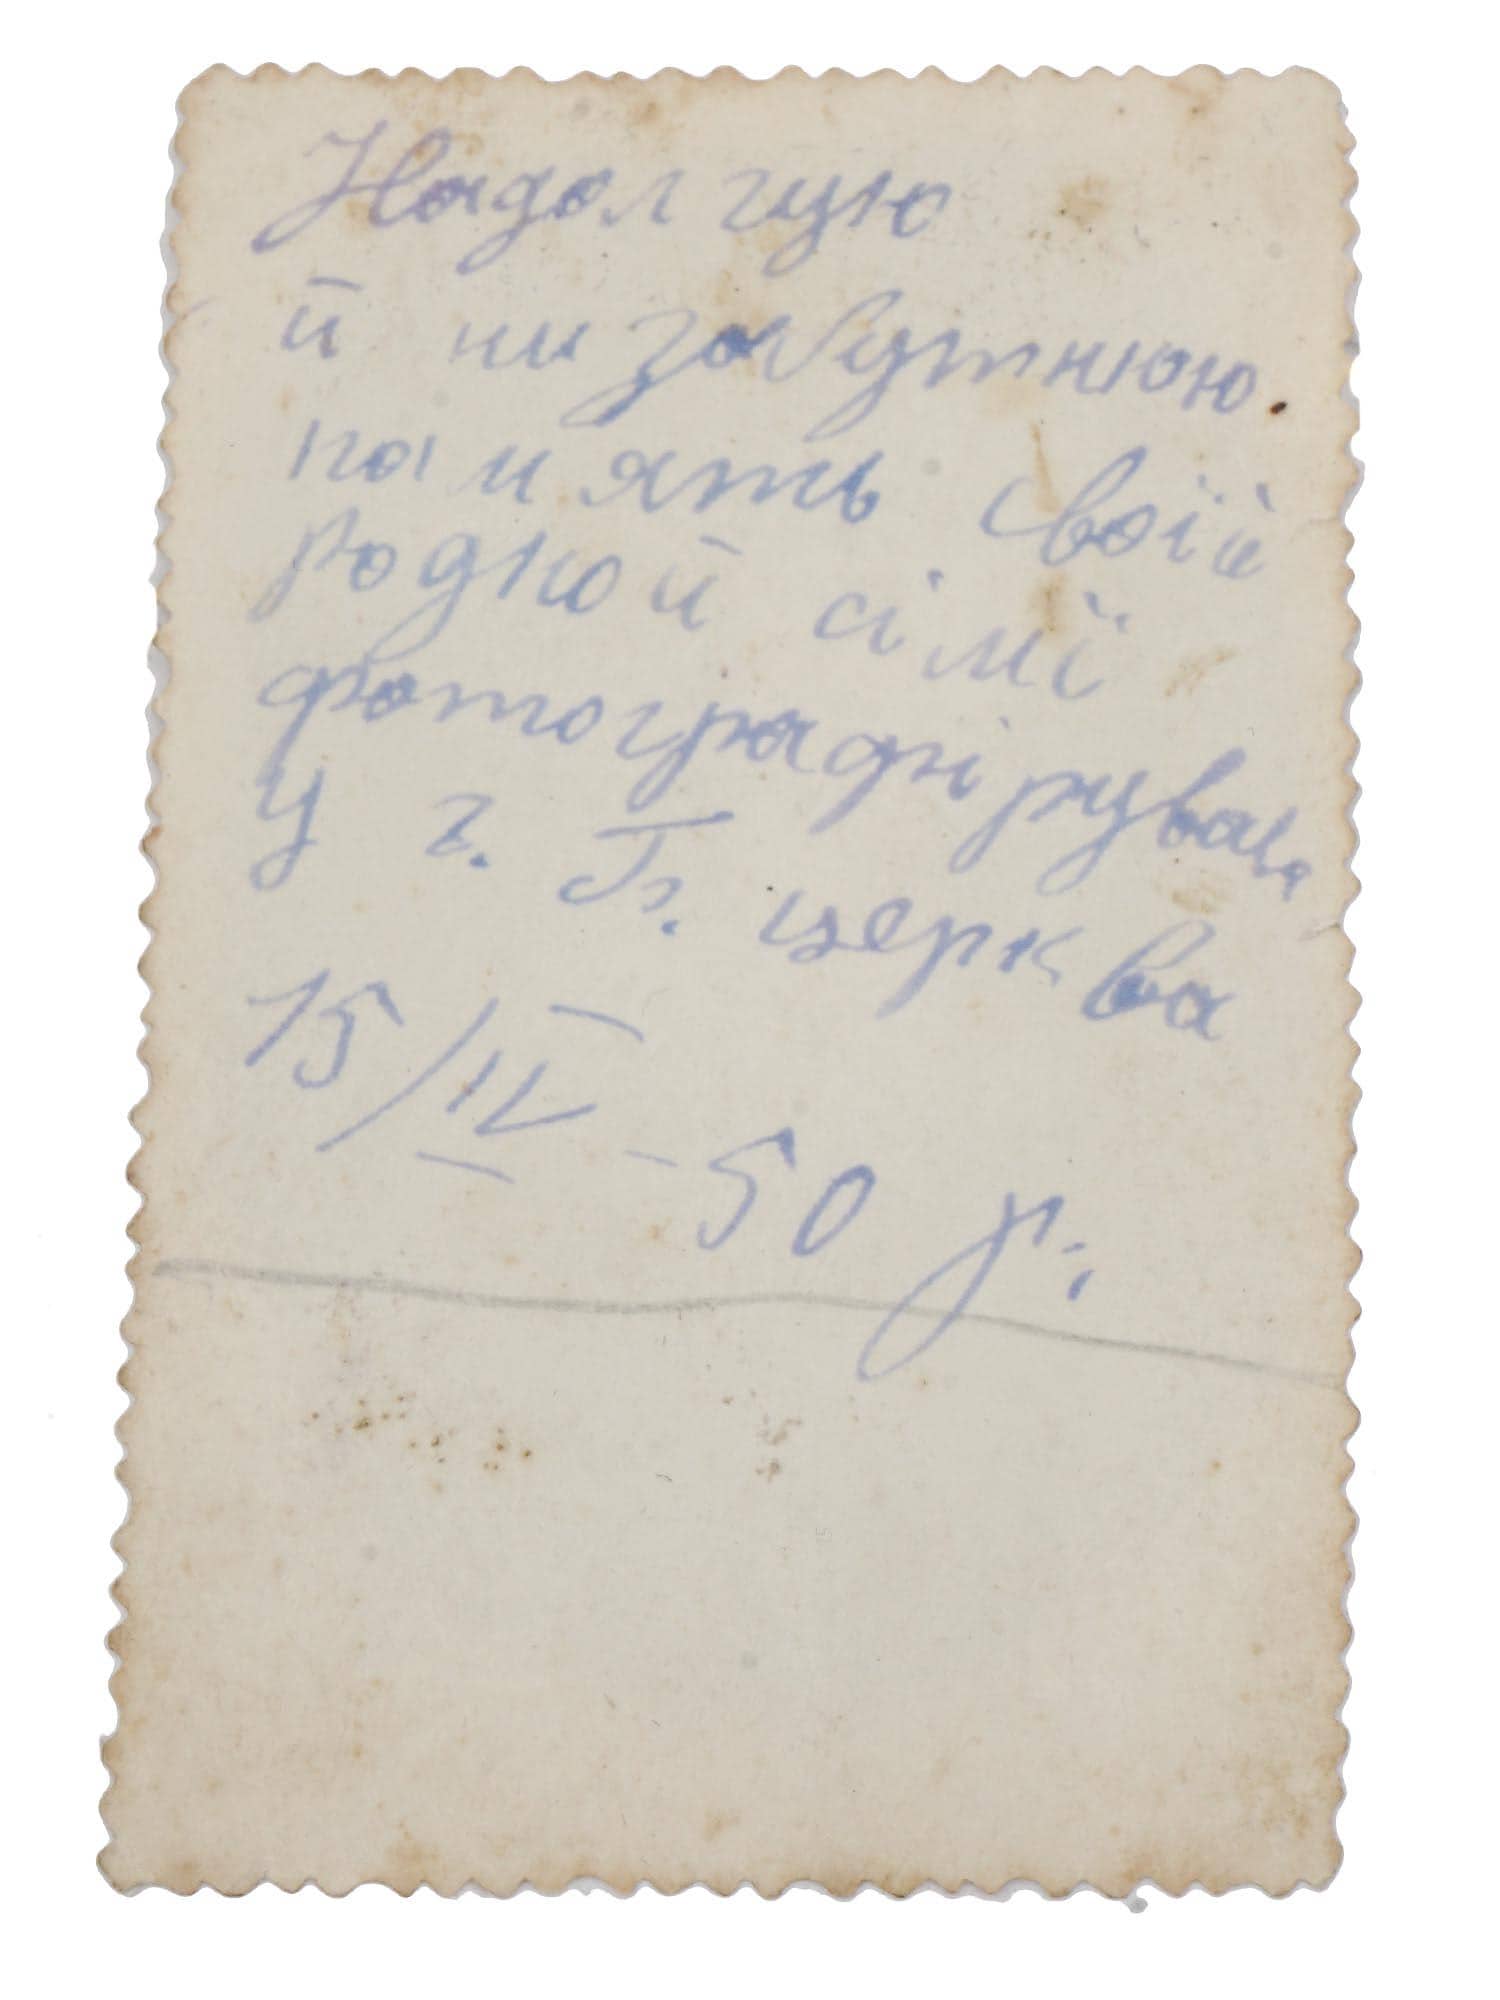 Надолгую
й ни забутнюю.
память своїй
родной сімї
фотографірував
у г. Б. церква
15/IV-50 р.